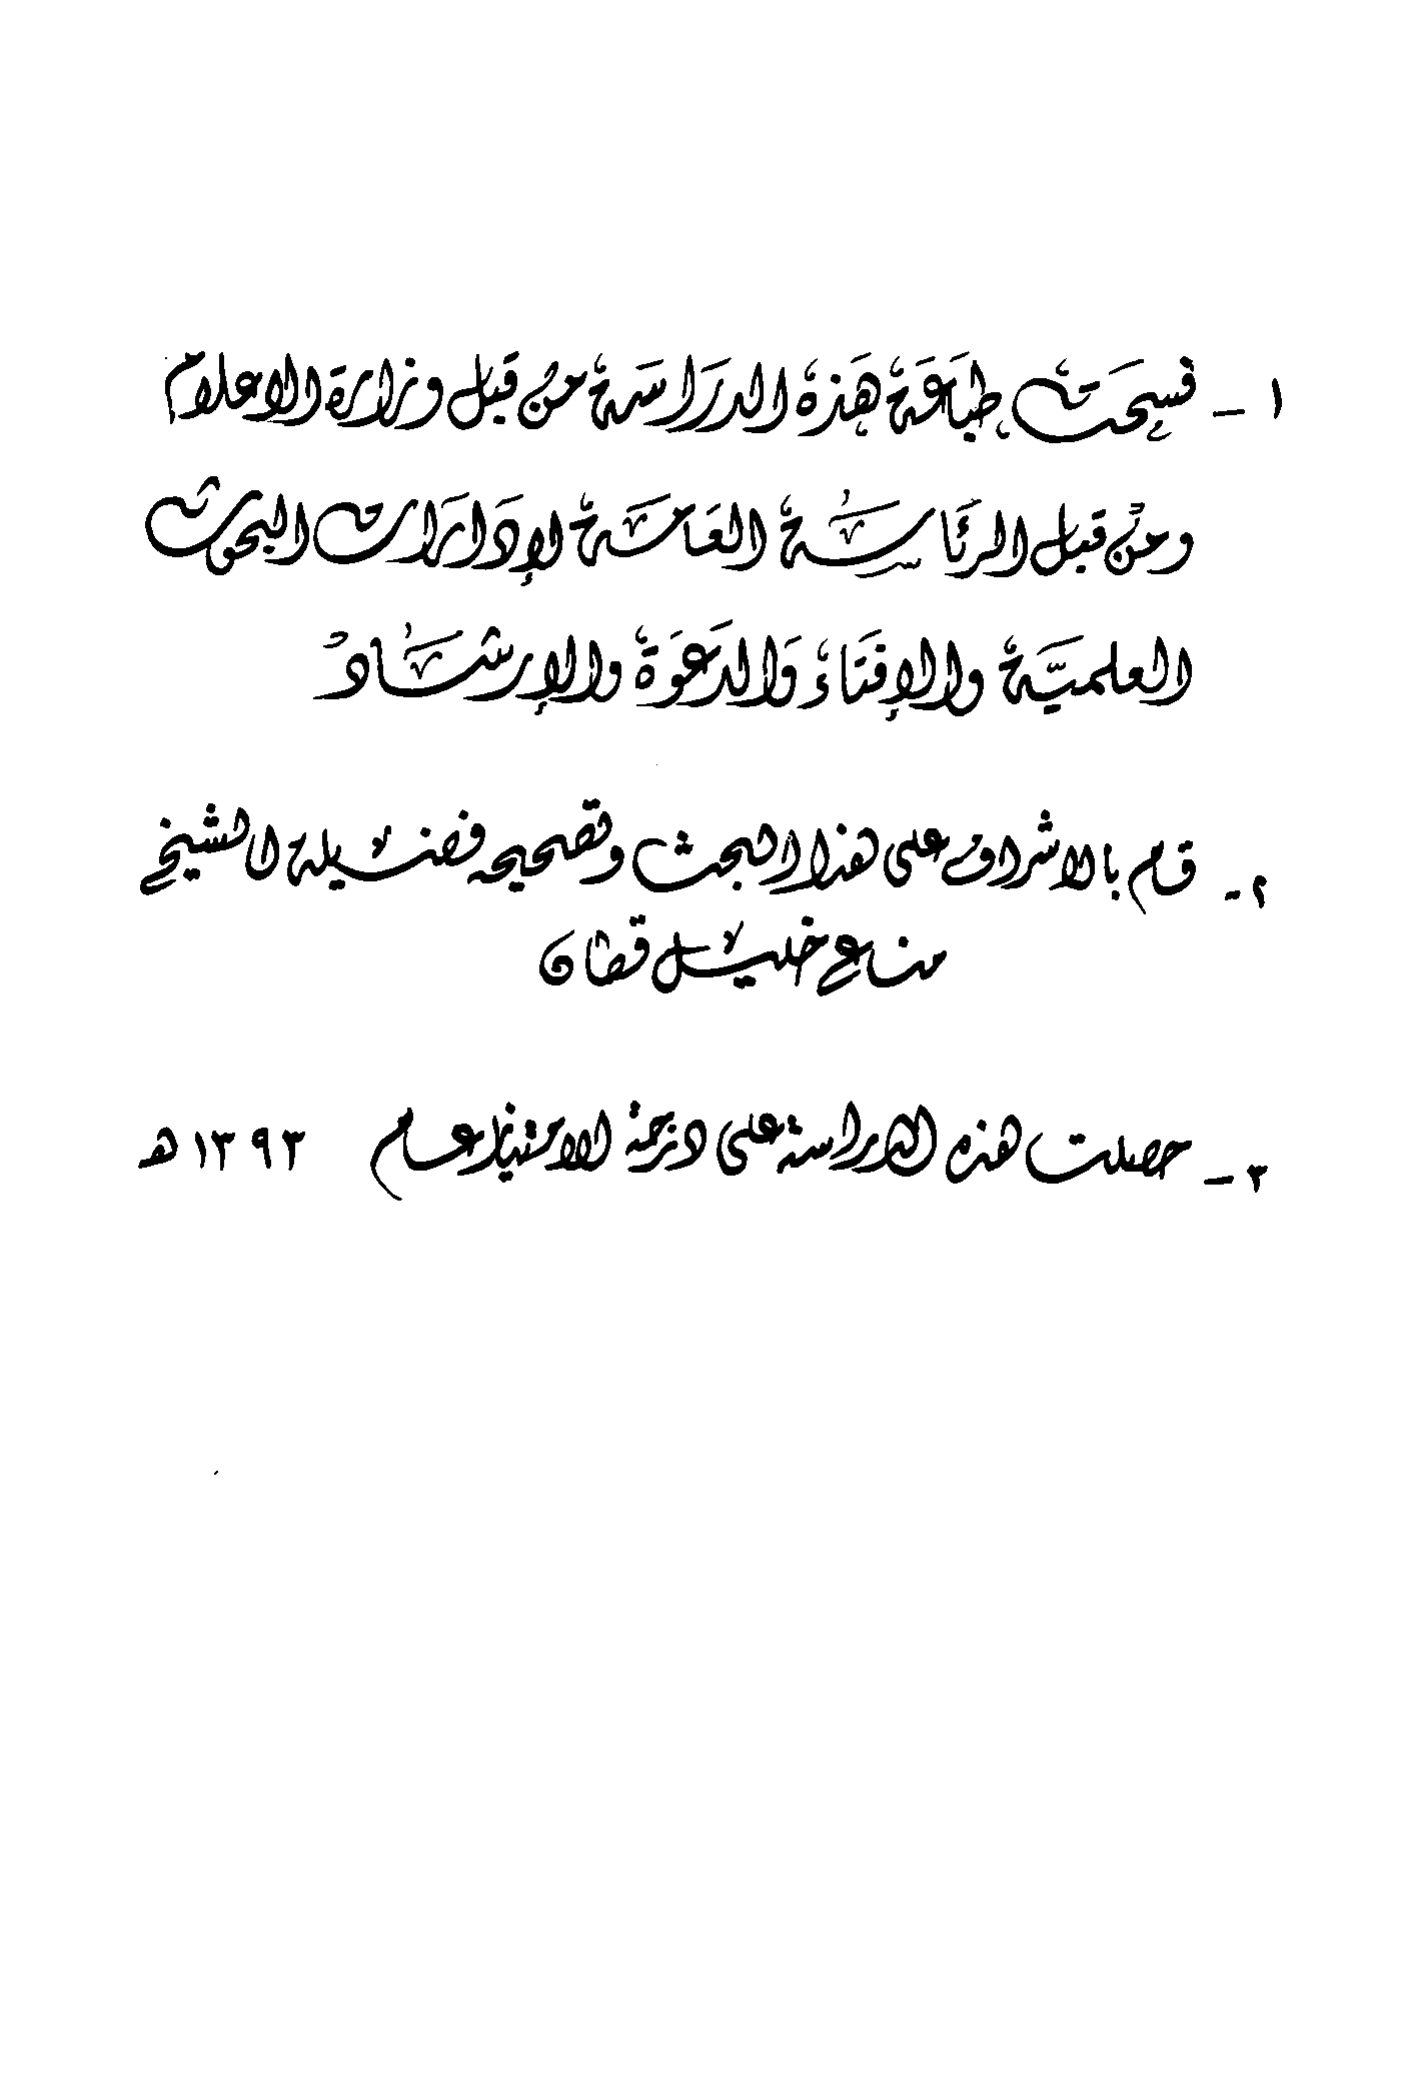 ١ - فسحت طباعة هذه الدراسة من قبل وزارة الاعلام
ومن قبل الرئاسة العامة لإدارات البحوث
العلمية والإفتاء والدعوة والإرشاد
٢ - قام بالاشراف على هذا البحث وتصحيحه فضيلة الشيخ
مناع خليل قطان
٣ - حصلت هذه الدراسة على درجة الامتياز عام ١٣٩٣ هـ